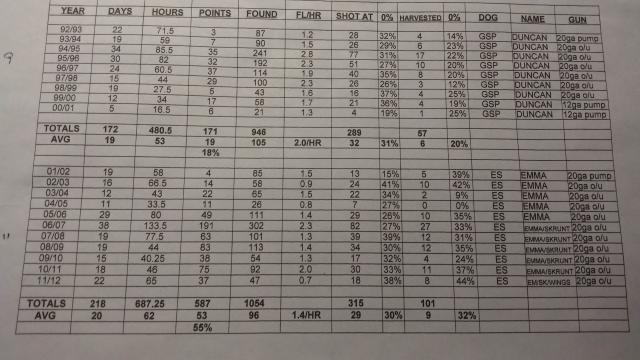 YEAR DAYS HOURS POINTS FOUND FL/HR SHOT AT 0% HARVESTED 0% DOG NAME GUN
92/93 22 71.5 3 87 1.2 28 32% 4 14% GSP DUNCAN 20ga pump
93/94 19 59 7 90 1.5 26 29% 6 23% GSP DUNCAN 20ga o/u
94/95 34 85.5 35 241 2.8 77 31% 17 22% GSP DUNCAN 20ga o/u
95/96 30 82 32 192 2.3 51 27% 10 20% GSP DUNCAN 20ga o/u
96/97 24 60.5 37 114 1.9 40 35% 8 20% GSP DUNCAN 20ga o/u
97/98 15 44 29 100 2.3 26 26% 3 12% GSP DUNCAN 20ga o/u
98/99 19 27.5 5 43 1.6 16 37% 4 25% GSP DUNCAN 20ga o/u
99/00 12 34 17 58 1.7 21 36% 4 19% GSP DUNCAN 12ga pump
00/01 5 16.5 6 21 1.3 4 19% 1 25% GSP DUNCAN 12ga pump
TOTALS 172 480.5 171 946 289 57
AVG 19 53 19 105 2.0/HR 32 31% 6 20%
18%
01/02 19 58 4 85 1.5 13 15% 5 39% ES EMMA 20ga pump
02/03 16 66.5 14 58 0.9 24 41% 10 42% ES EMMA 20ga o/u
03/04 12 43 22 65 1.5 22 34% 2 9% ES EMMA 20ga o/u
04/05 11 33.5 11 26 0.8 7 27% 0 0% ES EMMA 20ga o/u
05/06 29 80 49 111 1.4 29 26% 10 35% ES EMMA 20ga o/u
06/07 38 133.5 191 302 2.3 82 27% 27 33% ES EMMA/SKRUNT 20ga o/u
07/08 19 77.5 63 101 1.3 39 39% 12 31% ES EMMA/SKRUNT 20ga o/u
08/09 19 44 83 113 1.4 34 30% 12 35% ES EMMA/SKRUNT 20ga o/u
09/10 15 40.25 38 54 1.3 17 32% 4 24% ES EMMA/SKRUNT 20ga o/u
10/11 18 46 75 92 2.0 30 33% 11 37% ES EMMA/SKRUNT 20ga o/u
11/12 22 65 37 47 0.7 18 38% 8 44% ES EM/SK/WINGS 20ga o/u
TOTALS 218 687.25 587 1054 315 101
AVG 20 62 53 96 1.4/HR 29 30% 9 32%
55%